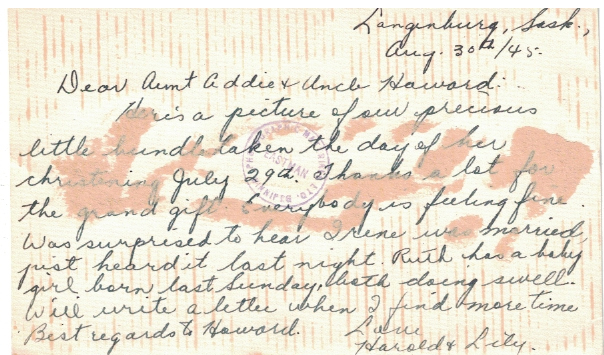 Langenburg, Sask.,
Aug. 30th/45.
Dear Aunt Addie & Uncle Howard:
Here's a picture of our precious
little bundle taken the day of her
christening July 29th. Thanks a lot for
the grand gift. Everybody is feeling fine.
Was surprised to hear Irene was married,
just heard it last night. Ruth has a baby
girl born last Sunday, both doing swell.
Will write a letter when I find more time
Best regards to Howard. Love
Harold & Lily.
EASTMAN